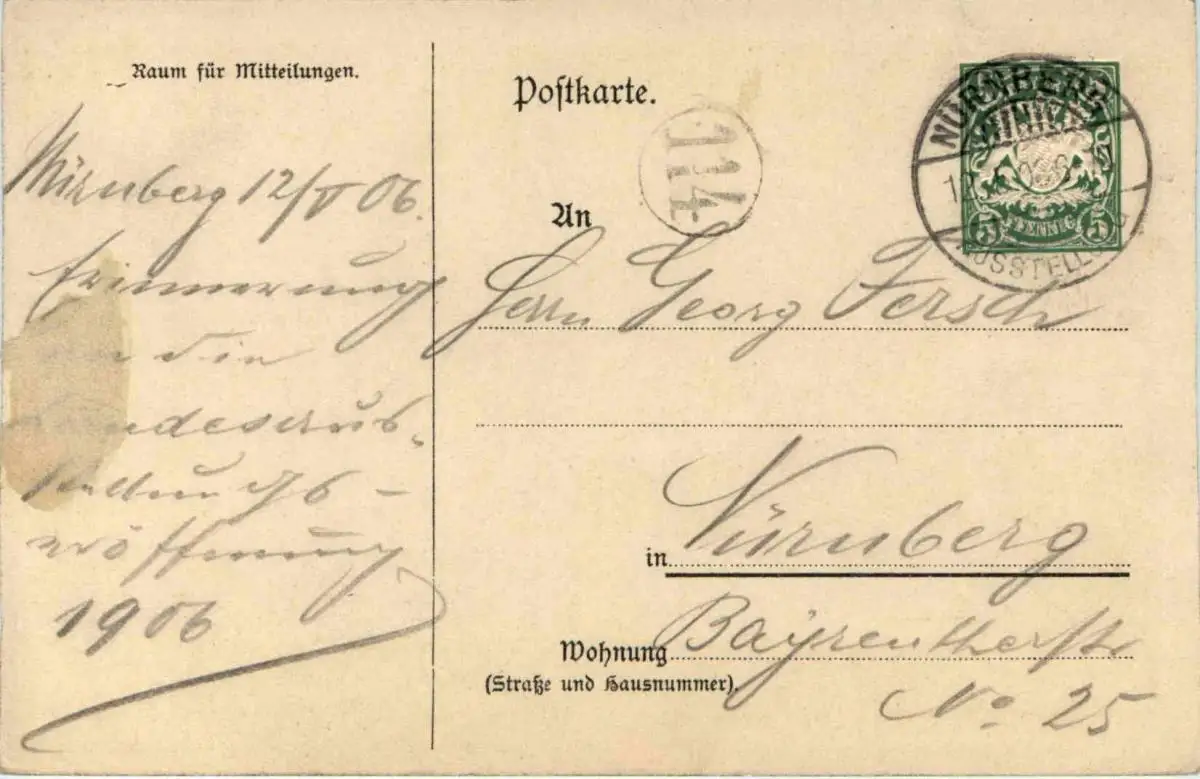 Raum für Mitteilungen.
Nürnberg 12/V 06.
Erinnerung
an die
Landesaus-
stellungs-
eröffnung
1906
Postkarte.
114
NÜRNBERG
AUSSTELLUNG
5 PFENNIG 5
An
Herrn Georg Fersch
in Nürnberg
Wohnung Bayreutherstr
(Straße und Hausnummer).
No. 25